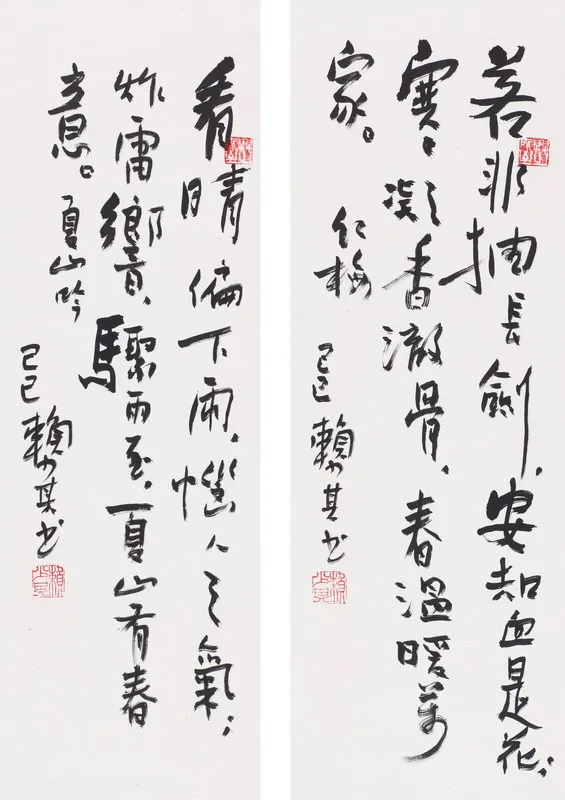 若非抽長劍，安知血是花；
寒凝香澈骨、春溫暖萬
家。紅梅
己巳賴少其書
看晴偏下雨，惱人之氣；
炸雷響，驟雨至，夏山有春
意。夏山吟
己巳賴少其書